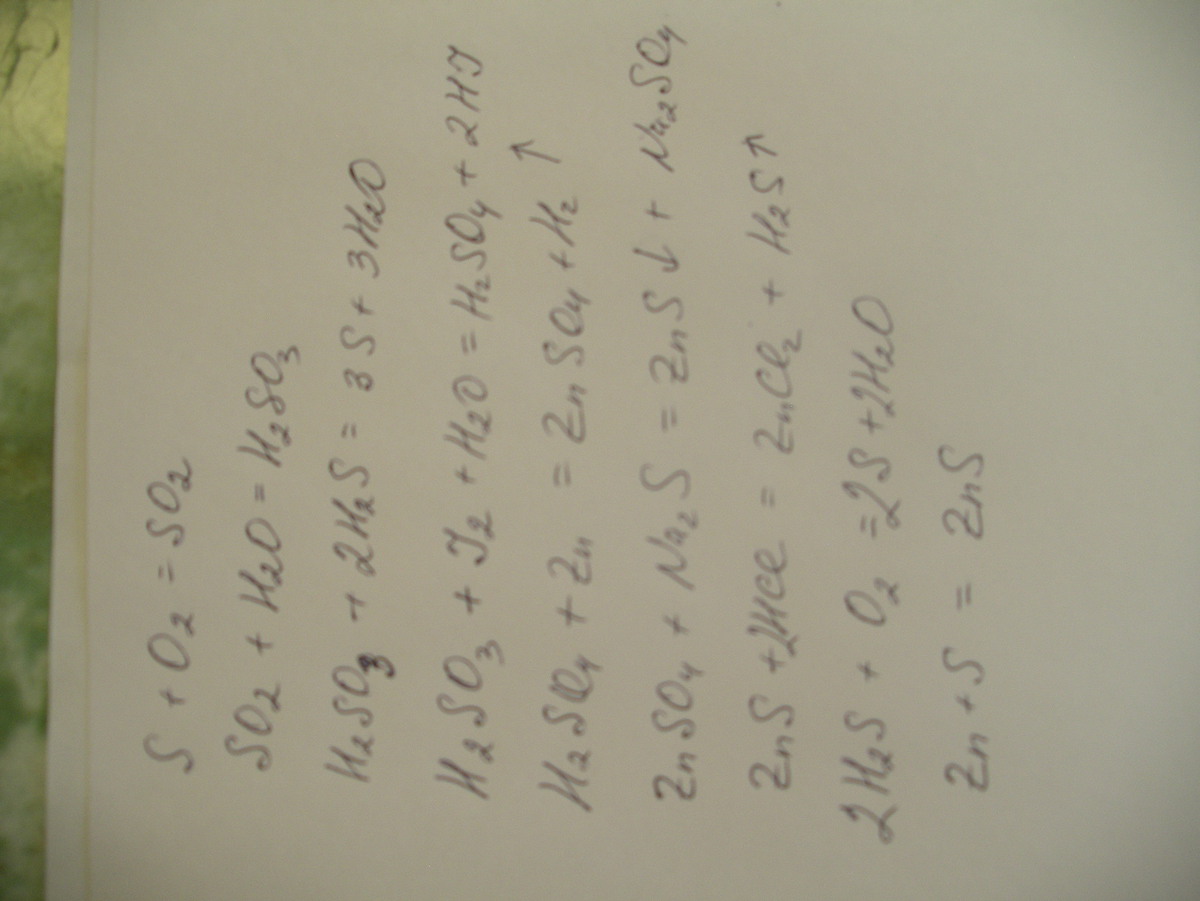 S + O₂ = SO₂
SO₂ + H₂O = H₂SO₃
H₂SO₃ + 2H₂S = 3S + 3H₂O
H₂SO₃ + J₂ + H₂O = H₂SO₄ + 2HJ
H₂SO₄ + Zn = ZnSO₄ + H₂ ↑
ZnSO₄ + Na₂S = ZnS↓ + Na₂SO₄
ZnS + 2HCl = ZnCl₂ + H₂S↑
2H₂S + O₂ = 2S + 2H₂O
Zn + S = ZnS